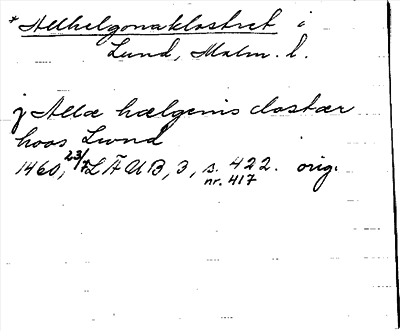 * Allhelgonaklostret i
Lund, Malm. l.
j Allæ hælgenis clostær
hoos Lwnd
1460, 23/7 LÄUB, 3, s. 422. orig.
nr. 417